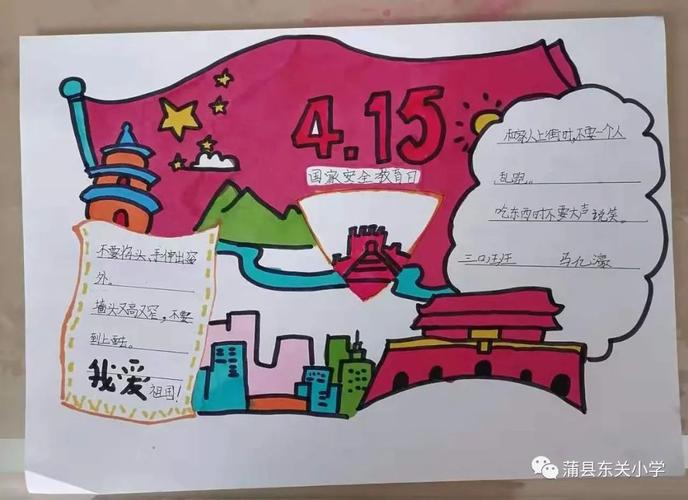 4.15
国家安全教育日
和家人上街时,不要一个人
乱跑。
吃东西时不要大声说笑。
三
不要将头、手伸出窗
外。
墙头又高又窄,不要
到上面去。
我爱祖国!
蒲县东关小学